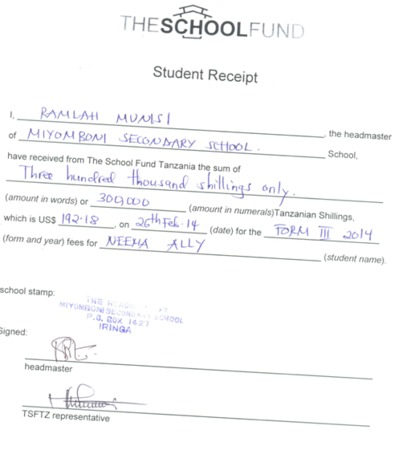 THESCHOOLFUND
Student Receipt
I, RAMLAH MUNISI, the headmaster
of MIYOMBONI SECONDARY SCHOOL. School,
have received from The School Fund Tanzania the sum of
Three hundred thousand shillings only.
(amount in words) or 300,000 (amount in numerals)Tanzanian Shillings,
which is US$ 192.18, on 26th Feb. 14 (date) for the FORM III 2014
(form and year) fees for NEEMA ALLY (student name).
school stamp:
MIYOMBONI SECONDARY SCHOOL
P.O. BOX 1627
IRINGA
Signed:
headmaster
TSFTZ representative